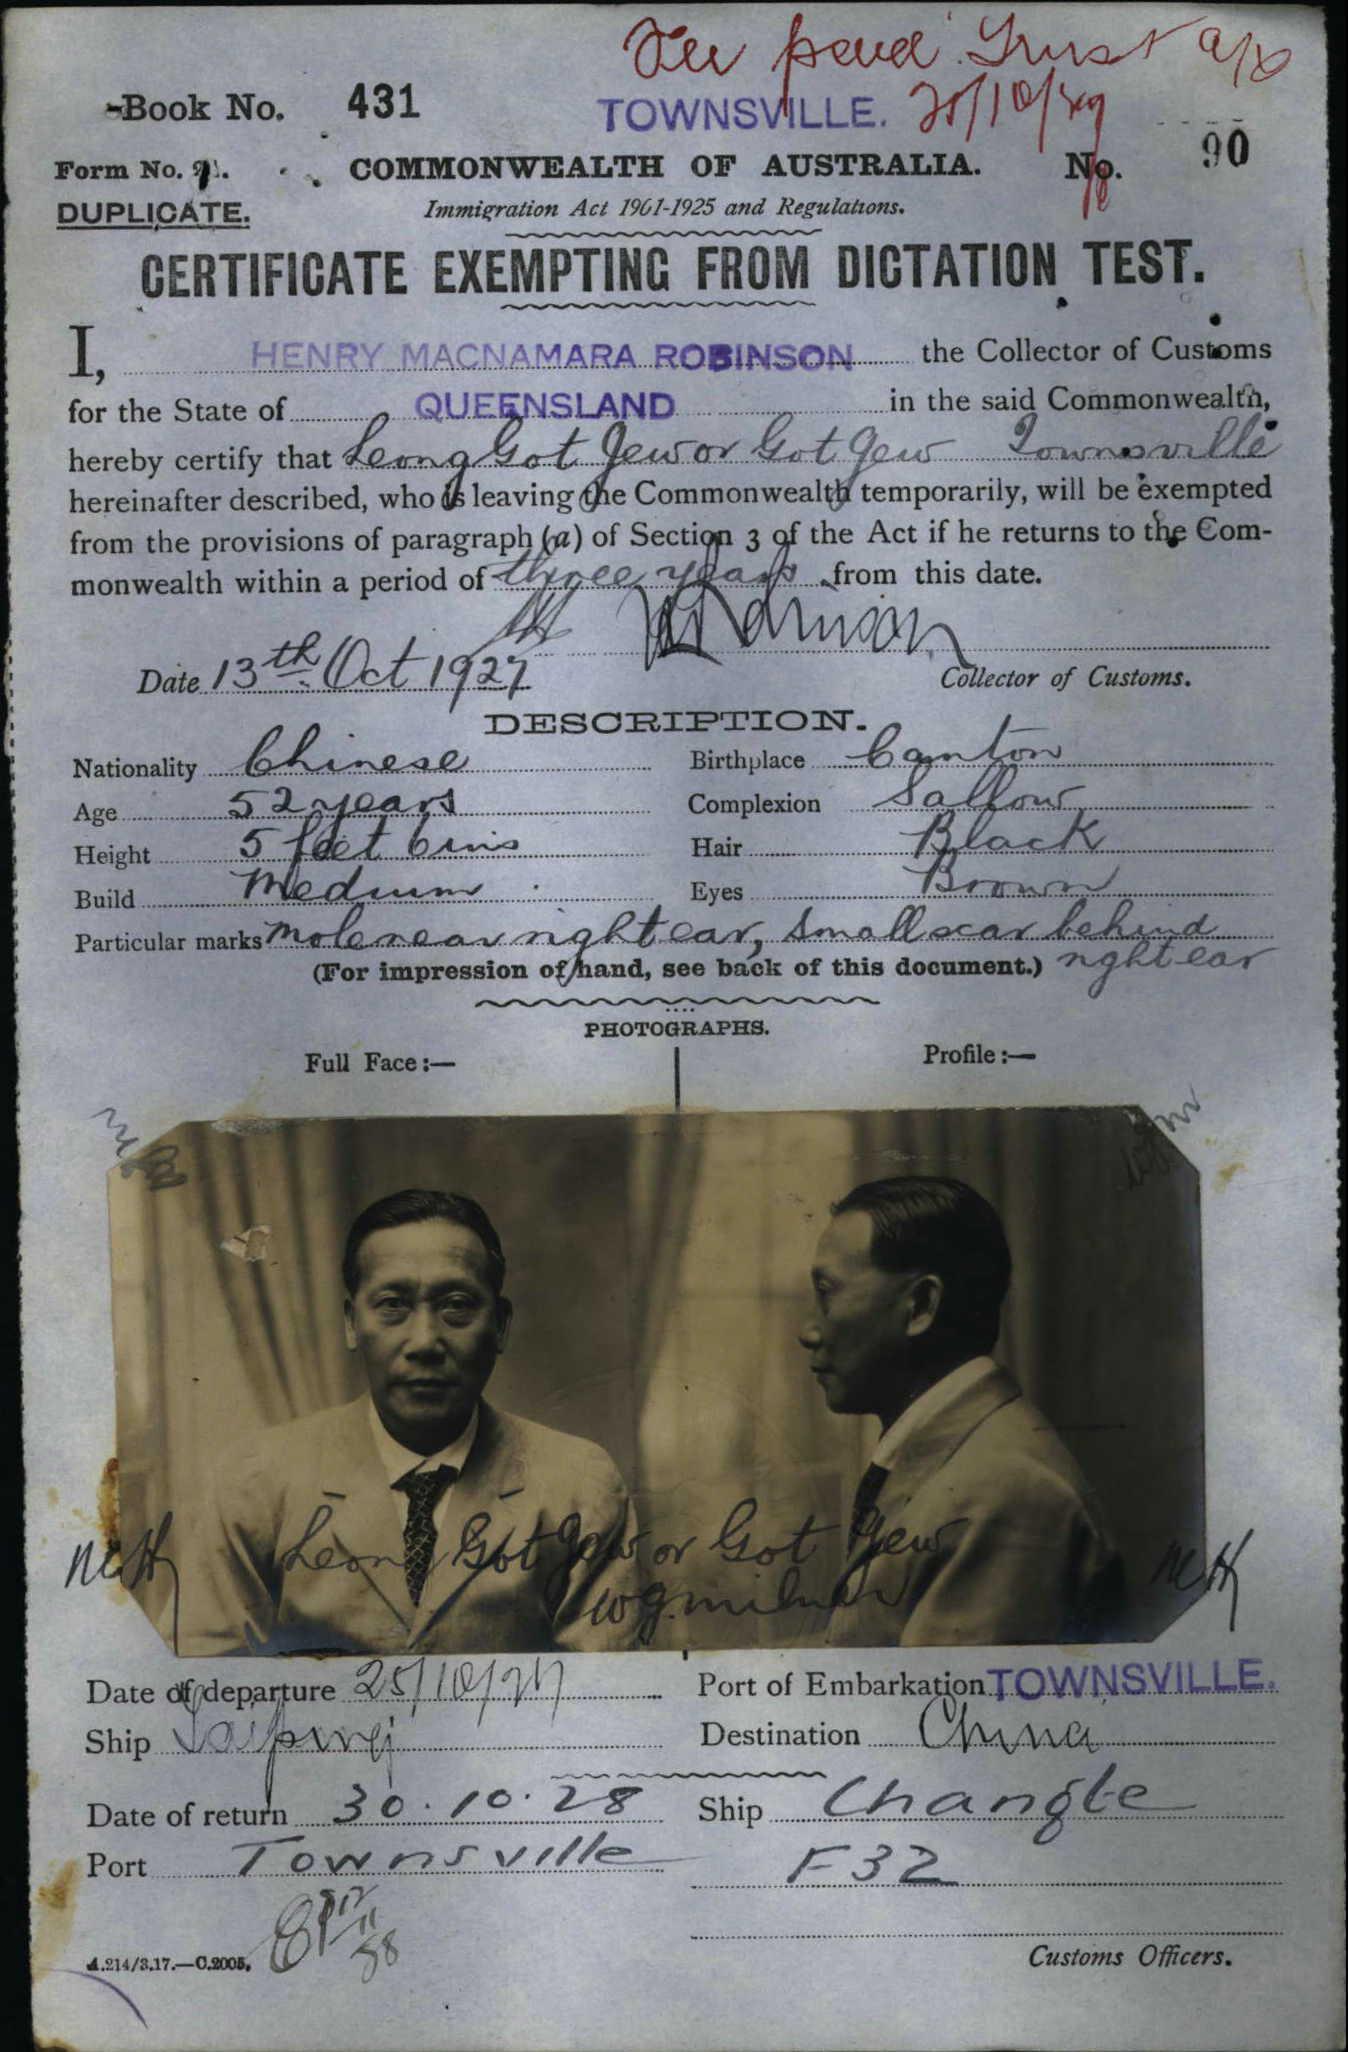 Fee paid Trust a/c
Book No. 431
TOWNSVILLE. 25/10/29
Form No. 21.
COMMONWEALTH OF AUSTRALIA.
No. 90
DUPLICATE.
Immigration Act 1901-1925 and Regulations.
CERTIFICATE EXEMPTING FROM DICTATION TEST.
I, HENRY MACNAMARA ROBINSON the Collector of Customs
for the State of QUEENSLAND in the said Commonwealth,
hereby certify that Leong Got Jew or Got Jew Townsville
hereinafter described, who is leaving the Commonwealth temporarily, will be exempted
from the provisions of paragraph (a) of Section 3 of the Act if he returns to the Com-
monwealth within a period of three years from this date.
HMRobinson
Date 13th Oct 1927
Collector of Customs.
DESCRIPTION.
Nationality Chinese
Birthplace Canton
Age 52 years
Complexion Sallow
Height 5 feet 6 ins
Hair Black
Build Medium
Eyes Brown
Particular marks Mole near right ear, small scar behind
right ear
(For impression of hand, see back of this document.)
PHOTOGRAPHS.
Full Face:—
Profile:—
Leong Got Jew or Got Jew
W.G. Milner
Date of departure 25/10/27
Port of Embarkation TOWNSVILLE.
Ship Taiping
Destination China
Date of return 30.10.28
Ship Changte
Port Townsville
F32
A.214/3.17.—C.2005.
Customs Officers.